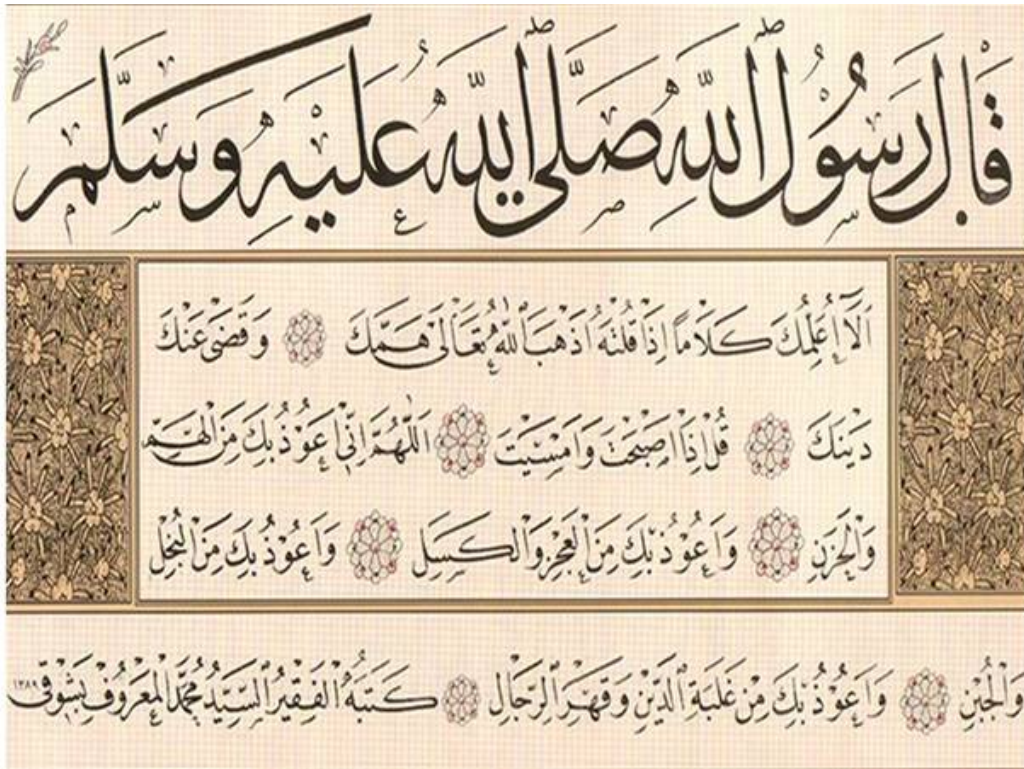 قَالَ رَسُولُ اللهِ صَلَّى اللهُ عَلَيْهِ وَسَلَّمَ
اَلَا اُعَلِّمُكَ كَلَامًا اِذَا قُلْتَهُ اَذْهَبَ اللهُ تَعَالَى هَمَّكَ وَقَضَى عَنْكَ
دَيْنَكَ قُلْ اِذَا اَصْبَحْتَ وَاَمْسَيْتَ اَللّٰهُمَّ اِنِّى اَعُوذُ بِكَ مِنَ الْهَمِّ
وَالْحَزَنِ وَاَعُوذُ بِكَ مِنَ الْعَجْزِ وَالْكَسَلِ وَاَعُوذُ بِكَ مِنَ الْبُخْلِ
وَالْجُبْنِ وَاَعُوذُ بِكَ مِنْ غَلَبَةِ الدَّيْنِ وَقَهْرِ الرِّجَالِ كَتَبَهُ الْفَقِيرُ السَّيِّدُ مُحَمَّدُ الْمَعْرُوفُ بِشَوْقِى ١٢٨٩